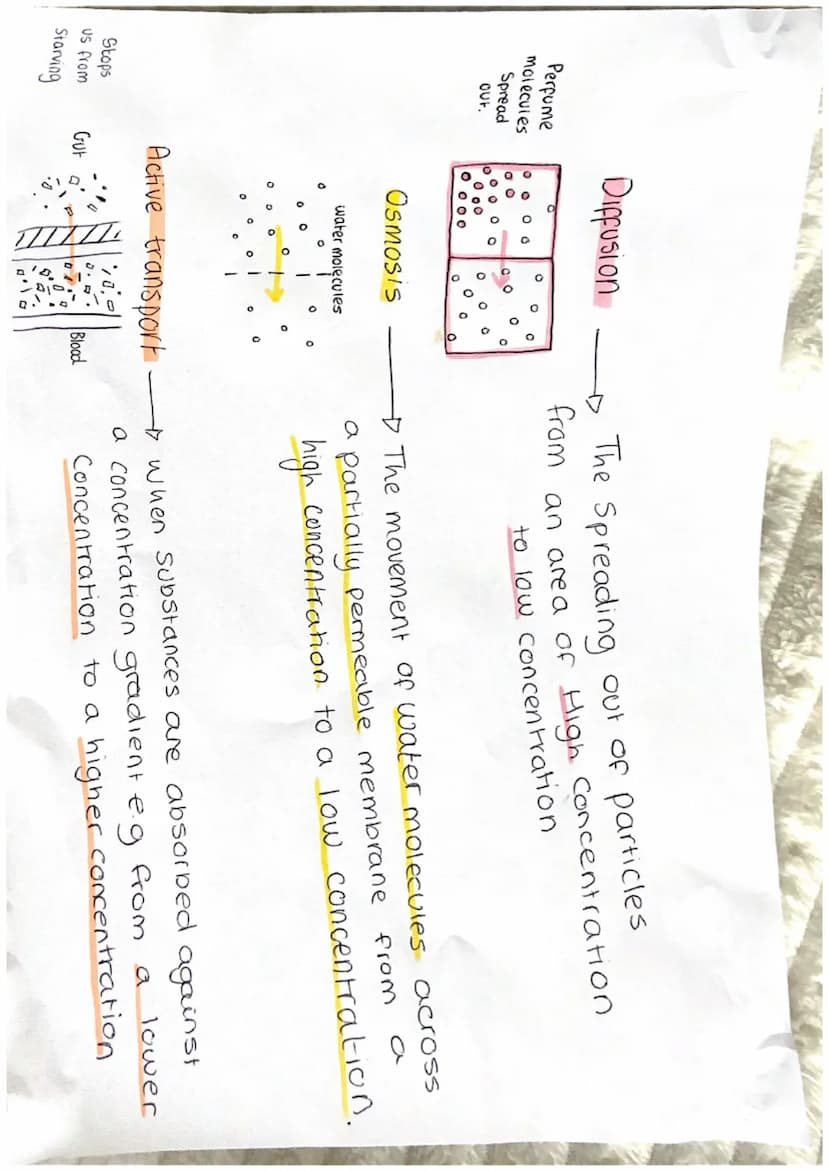 Diffusion → The Spreading out of particles
from an area of High concentration
to low concentration
Perfume
molecules
Spread
out.
Osmosis → The movement of water molecules across
a partially permeable membrane from a
high concentration to a low concentration.
water molecules
Active transport → when substances are absorbed against
a concentration gradient e.g from a lower
concentration to a higher concentration
Stops
us from
starving
Gut
Blood